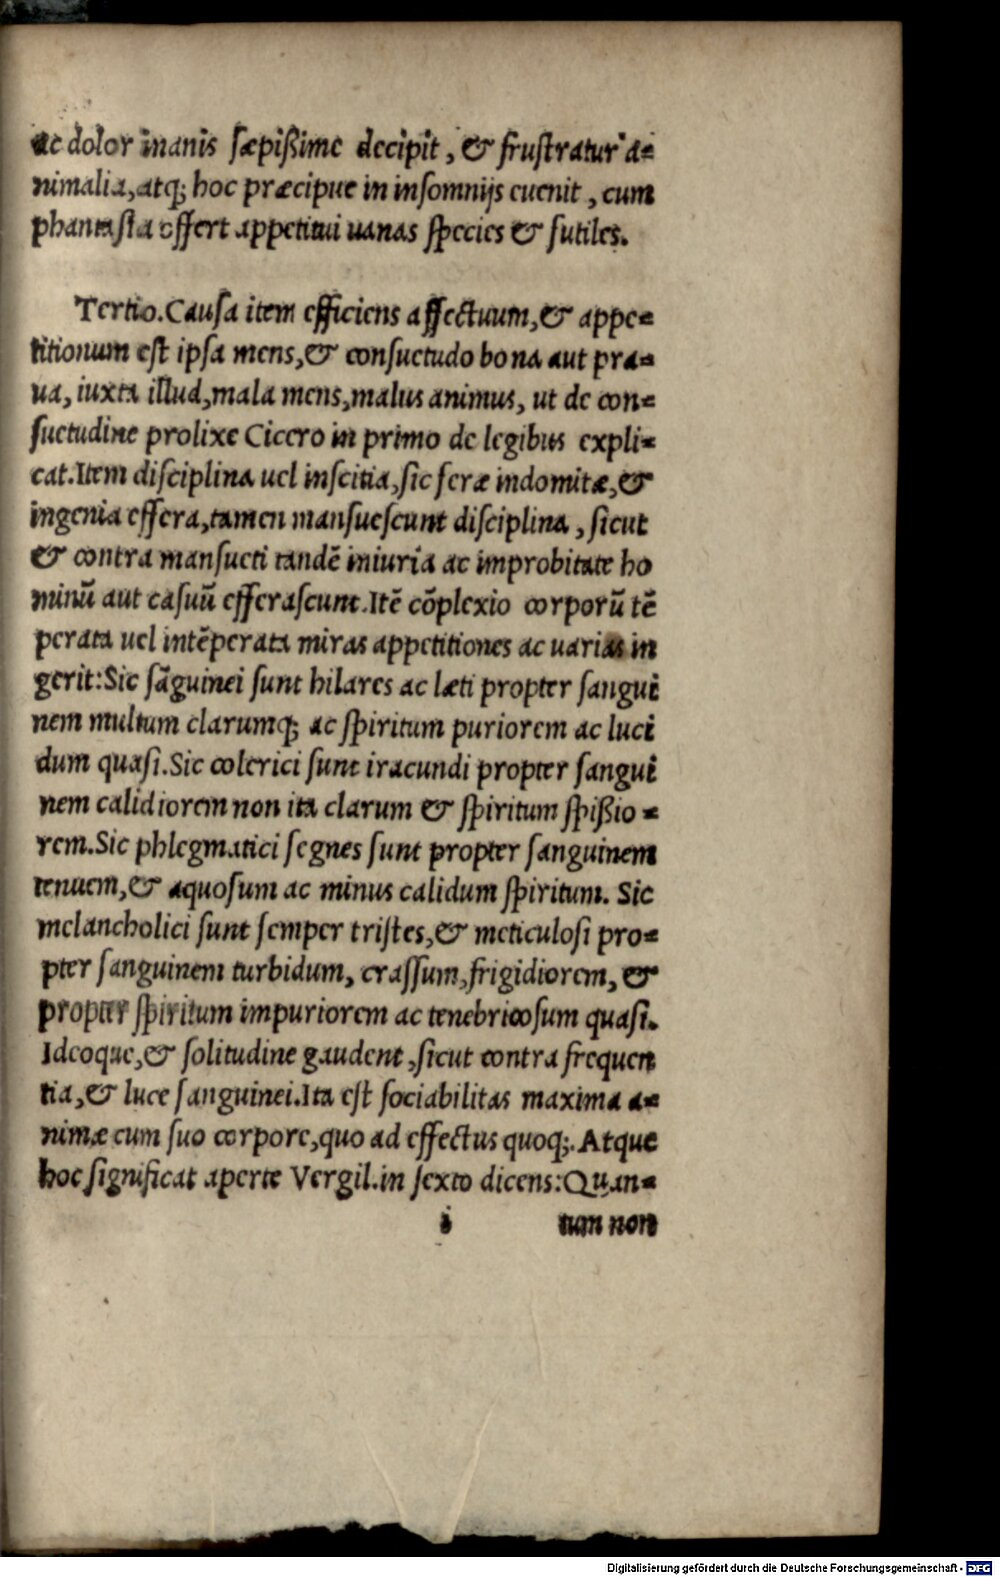 ac dolor inanis sæpißime decipit, & frustratur a=
nimalia, atq; hoc præcipue in insomnijs euenit, cum
phantasia offert appetitui uanas species & futiles.
Tertio. Causa item efficiens affectuum, & appe=
titionum est ipsa mens, & consuetudo bona aut pra=
ua, iuxta illud, mala mens, malus animus, ut de con=
suetudine prolixe Cicero in primo de legibus expli=
cat. Item disciplina uel inscitia, sic feræ indomitæ, &
ingenia effera, tamen mansuescunt disciplina, sicut
& contra mansueti tandē iniuria ac improbitate ho
minū aut casuū efferascunt. Itē cōplexio corporū tē
perata uel intēperata miras appetitiones ac uarias in
gerit: Sic sāguinei sunt hilares ac læti propter sangui
nem multum clarumq; ac spiritum puriorem ac luci
dum quasi. Sic colerici sunt iracundi propter sangui
nem calidiorem non ita clarum & spiritum spißio=
rem. Sic phlegmatici segnes sunt propter sanguinem
tenuem, & aquosum ac minus calidum spiritum. Sic
melancholici sunt semper tristes, & meticulosi pro=
pter sanguinem turbidum, crassum, frigidiorem, &
propter spiritum impuriorem ac tenebricosum quasi.
Ideoque, & solitudine gaudent, sicut contra frequen
tia, & luce sanguinei. Ita est sociabilitas maxima a=
nimæ cum suo corpore, quo ad effectus quoq;. Atque
hoc significat aperte Vergil. in sexto dicens: Quan=
i tum non
Digitalisierung gefördert durch die Deutsche Forschungsgemeinschaft - DFG